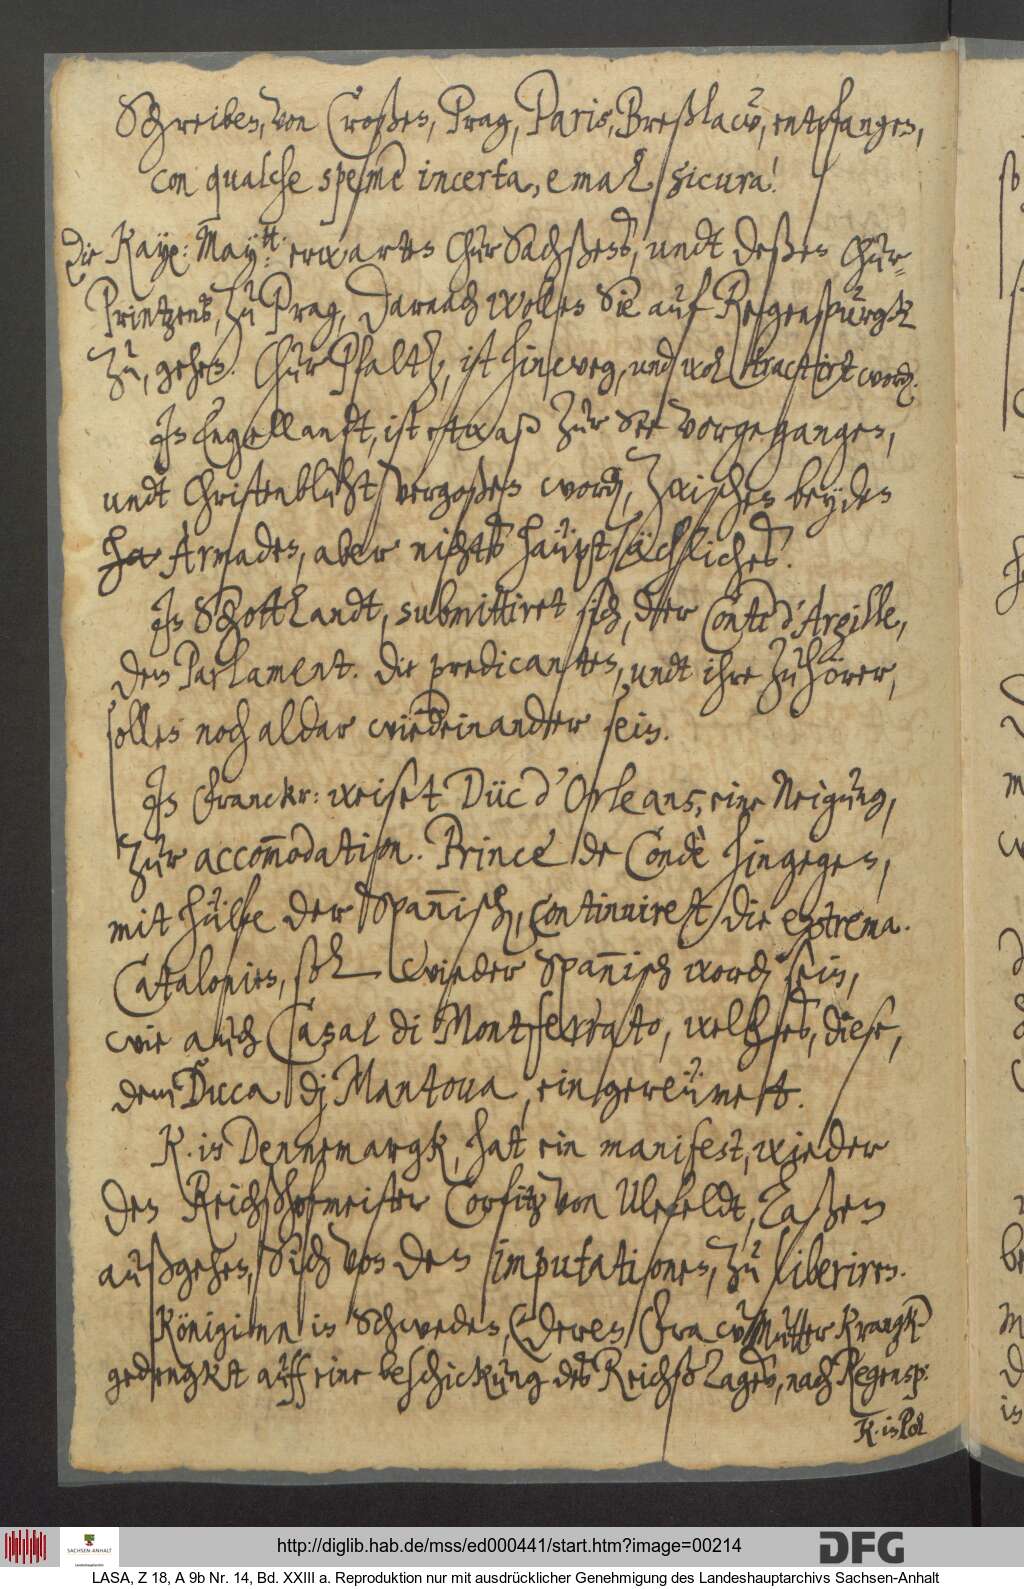 Schreiben, von Croßen, Prag, Paris, Breßlaw, entpfangen,
con qualche speme incerta, e mal sicura!
Die Kayß: Maytt: erwarten ChurSachßens, undt deßen Chur-
Printzens, zu Prag, darnach wollen Sie auf Regenspurgk
zu, gehen. ChurPfaltz, ist hinweg, und wol tractirt word.
In Engellandt, ist etwaß zur See vorgegangen,
undt Christenbluht vergoßen word, zwischen beyden
Armaden, aber nichts hauptsächliches.
In Schottlandt, submittiret sich, der Conte d'Argille,
dem Parlament. Die predicanten, undt ihre zuhörer,
sollen noch aldar wiedeinander sein.
In Franckr: weiset Düc d'Orleans, eine Neigung,
zur accommodation. Prince de Condè hingegen,
mit hülfe der Spannisch, continuiret die extrema.
Catalonien, sol wieder Spannisch word sein,
wie auch Casal di Montferrato, welches, diese,
dem Duca dj Mantoua, eingereümet.
K. in Dennemargk, hat ein manifest, wieder
den Reichshofmeister Corfitz von Ulefeldt, laßen
außgehen, Sich von den imputationen, zu liberiren.
Königinn in Schweden, (Deren Fraw Mutter kranck)
gedengkt auff eine beschickung des Reichstages, nach Regensp:
K. in Pol
http://diglib.hab.de/mss/ed000441/start.htm?image=00214
DFG
SACHSEN-ANHALT
LASA, Z 18, A 9b Nr. 14, Bd. XXIII a. Reproduktion nur mit ausdrücklicher Genehmigung des Landeshauptarchivs Sachsen-Anhalt